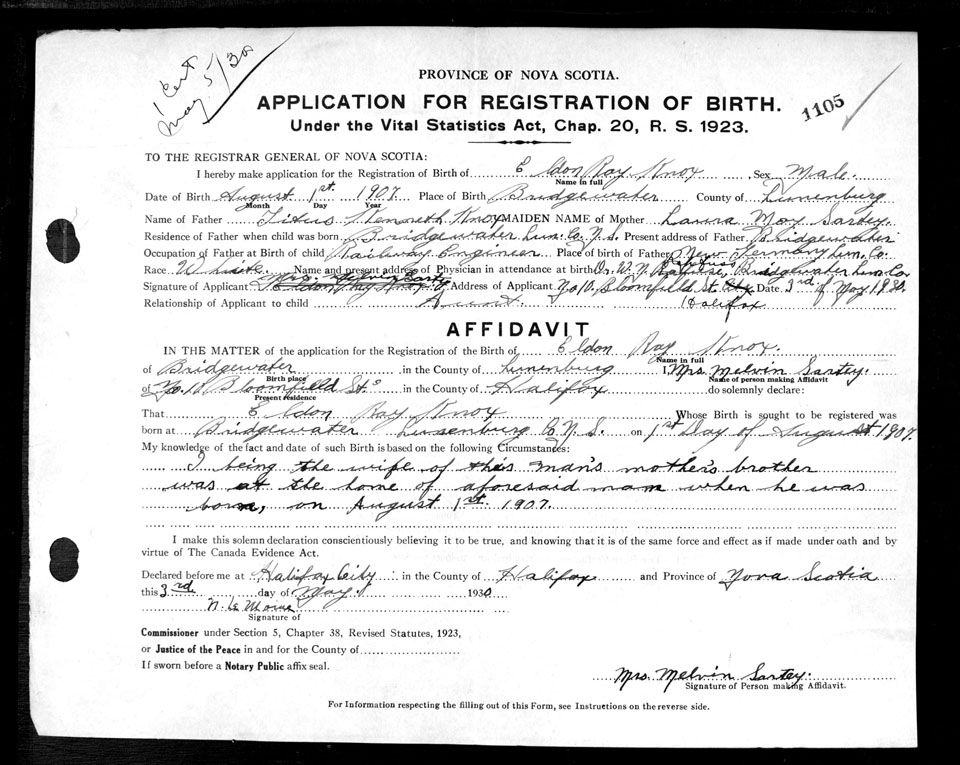 1 Cert
May 5/30
PROVINCE OF NOVA SCOTIA.
APPLICATION FOR REGISTRATION OF BIRTH.
1105
Under the Vital Statistics Act, Chap. 20, R. S. 1923.
TO THE REGISTRAR GENERAL OF NOVA SCOTIA:
I hereby make application for the Registration of Birth of Eldon Ray Knox Sex Male.
Name in full
Date of Birth August 1st 1907 Place of Birth Bridgewater County of Lunenburg
Month Day Year
Name of Father Titus Kenneth Knox MAIDEN NAME of Mother Laura May Sartey
Residence of Father when child was born Bridgewater Lun. Co. N.S. Present address of Father Bridgewater
Occupation of Father at Birth of child Railway Engineer Place of birth of Father New Germany Lun. Co.
Race White Name and present address of Physician in attendance at birth Dr. Bridgewater Lun. Co
Signature of Applicant Mrs. Melvin Sartey Address of Applicant No 10 Bloomfield St. Date 3rd of May 1930.
Relationship of Applicant to child Aunt Halifax
AFFIDAVIT
IN THE MATTER of the application for the Registration of the Birth of Eldon Ray Knox.
Name in full
of Bridgewater in the County of Lunenburg I, Mrs. Melvin Sartey.
Birth place Name of person making Affidavit
of No. 10 Bloomfield St. in the County of Halifax do solemnly declare:
Present residence
That Eldon Ray Knox Whose Birth is sought to be registered was
born at Bridgewater Lunenburg Co N.S. on 1st Day of August 1907.
My knowledge of the fact and date of such Birth is based on the following Circumstances:
I being the wife of this man's mother's brother
was at the home of aforesaid man when he was
born, on August 1st 1907.
I make this solemn declaration conscientiously believing it to be true, and knowing that it is of the same force and effect as if made under oath and by
virtue of The Canada Evidence Act.
Declared before me at Halifax City in the County of Halifax and Province of Nova Scotia
this 3rd day of May 1930
Signature of
Commissioner under Section 5, Chapter 38, Revised Statutes, 1923,
or Justice of the Peace in and for the County of
If sworn before a Notary Public affix seal.
Mrs. Melvin Sartey.
Signature of Person making Affidavit.
For Information respecting the filling out of this Form, see Instructions on the reverse side.